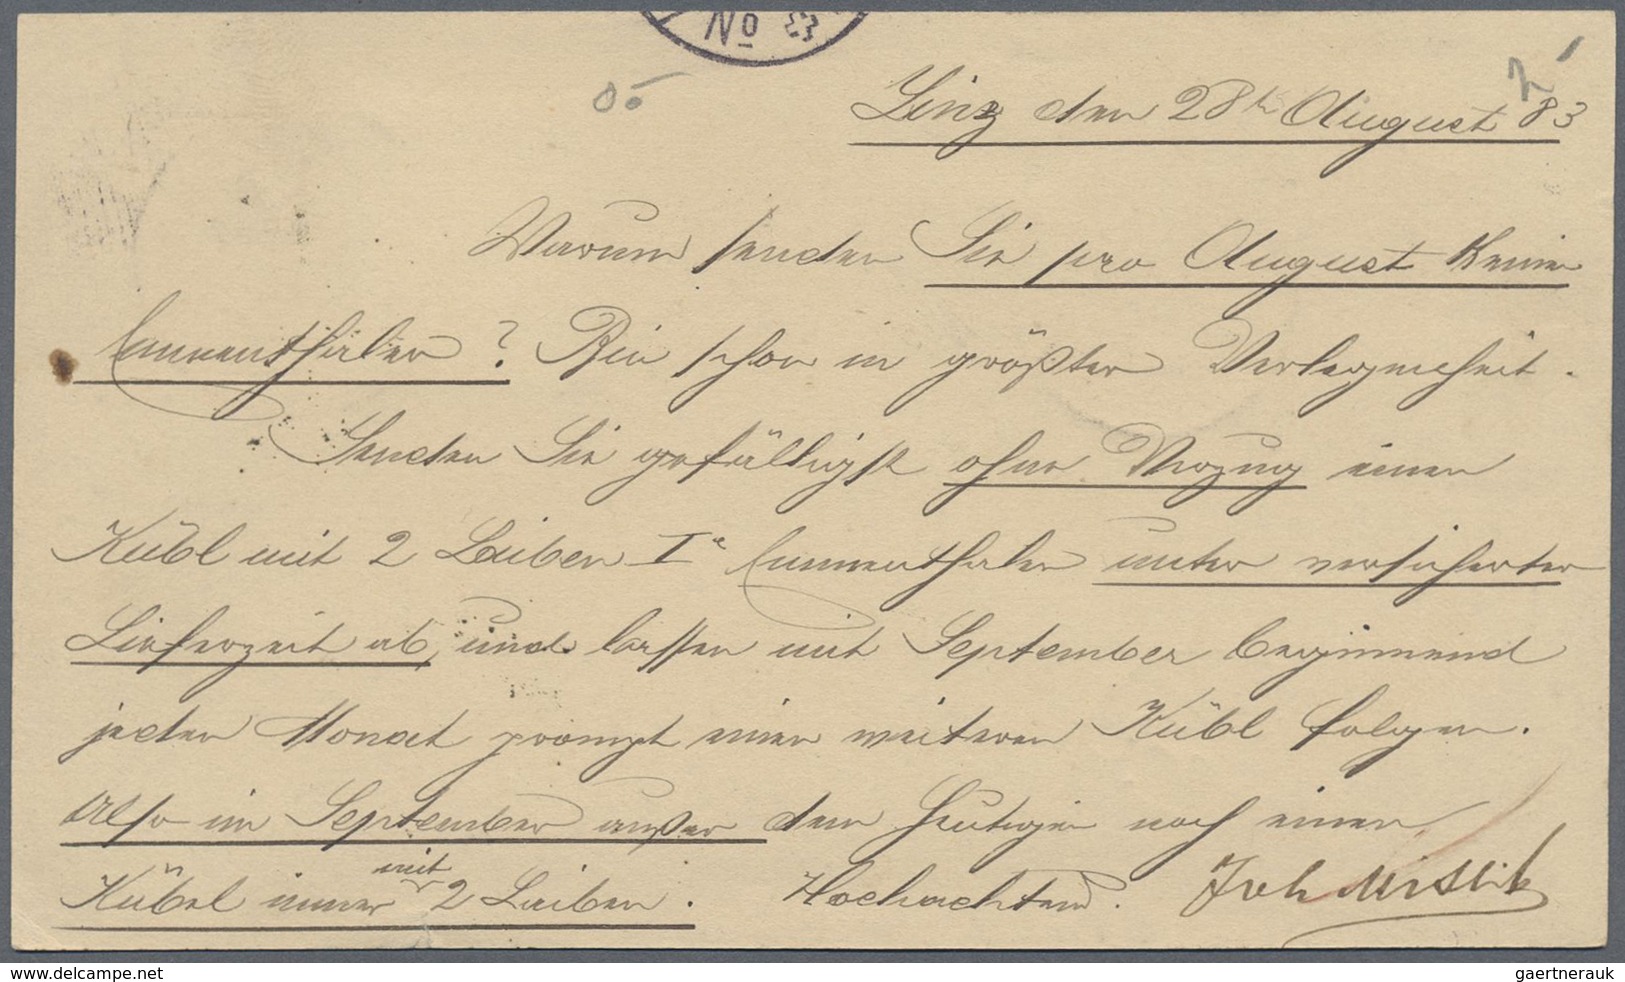 No 23
Linz den 28ten August 83
Warum senden Sie pro August keinen
Emmenthaler? Bin schon in größter Verlegenheit.
Senden Sie gefälligst ohne Verzug einen
Kübl mit 2 Laiben Ia Emmenthaler unter versicherter
Lieferzeit ab, und lassen mit September beginnend
jeden Monat prompt einen weiteren Kübl folgen.
Also im September außer dem heutigen noch einen
Kübel immer mit 2 Laiben. Hochachtend. Joh
delcampe.net
gaertnerauk